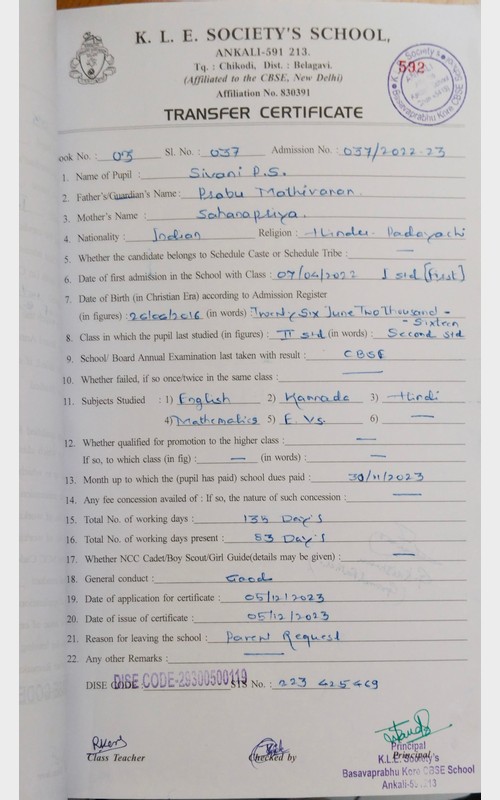 K. L. E. SOCIETY'S SCHOOL,
ANKALI-591 213.
Tq. : Chikodi, Dist. : Belagavi.
(Affiliated to the CBSE, New Delhi)
Affiliation No. 830391
592
TRANSFER CERTIFICATE
ook No. : 03 Sl. No. : 037 Admission No. : 037/2022-23
1. Name of Pupil : Sivani P.S.
2. Father's/Guardian's Name : Prabu Mathivanan.
3. Mother's Name : Sahanapriya.
4. Nationality : Indian Religion : Hindu. Padayachi
5. Whether the candidate belongs to Schedule Caste or Schedule Tribe : —
6. Date of first admission in the School with Class : 07/04/2022 I std [First]
7. Date of Birth (in Christian Era) according to Admission Register
(in figures) : 26/06/2016 (in words) Twenty Six June Two Thousand -
- Sixteen
8. Class in which the pupil last studied (in figures) : II std (in words) : Second std
9. School/ Board Annual Examination last taken with result : CBSE
10. Whether failed, if so once/twice in the same class : —
11. Subjects Studied : 1) English 2) Kannada 3) Hindi
4) Mathematics 5) E. Vs. 6) —
12. Whether qualified for promotion to the higher class : —
If so, to which class (in fig) : — (in words) : —
13. Month up to which (the pupil has paid) school dues paid : 30/11/2023
14. Any fee concession availed of : If so, the nature of such concession : —
15. Total No. of working days : 135 Day's
16. Total No. of working days present : 83 Day's
17. Whether NCC Cadet/Boy Scout/Girl Guide(details may be given) : —
18. General conduct : Good
19. Date of application for certificate : 05/12/2023
20. Date of issue of certificate : 05/12/2023
21. Reason for leaving the school : Paren Request
22. Any other Remarks : —
DISE CODE DISE CODE-29300500119 STS No. : 223 425469
Class Teacher Checked by Principal
Principal
K.L.E. Society's
Basavaprabhu Kore CBSE School
Ankali-5 213